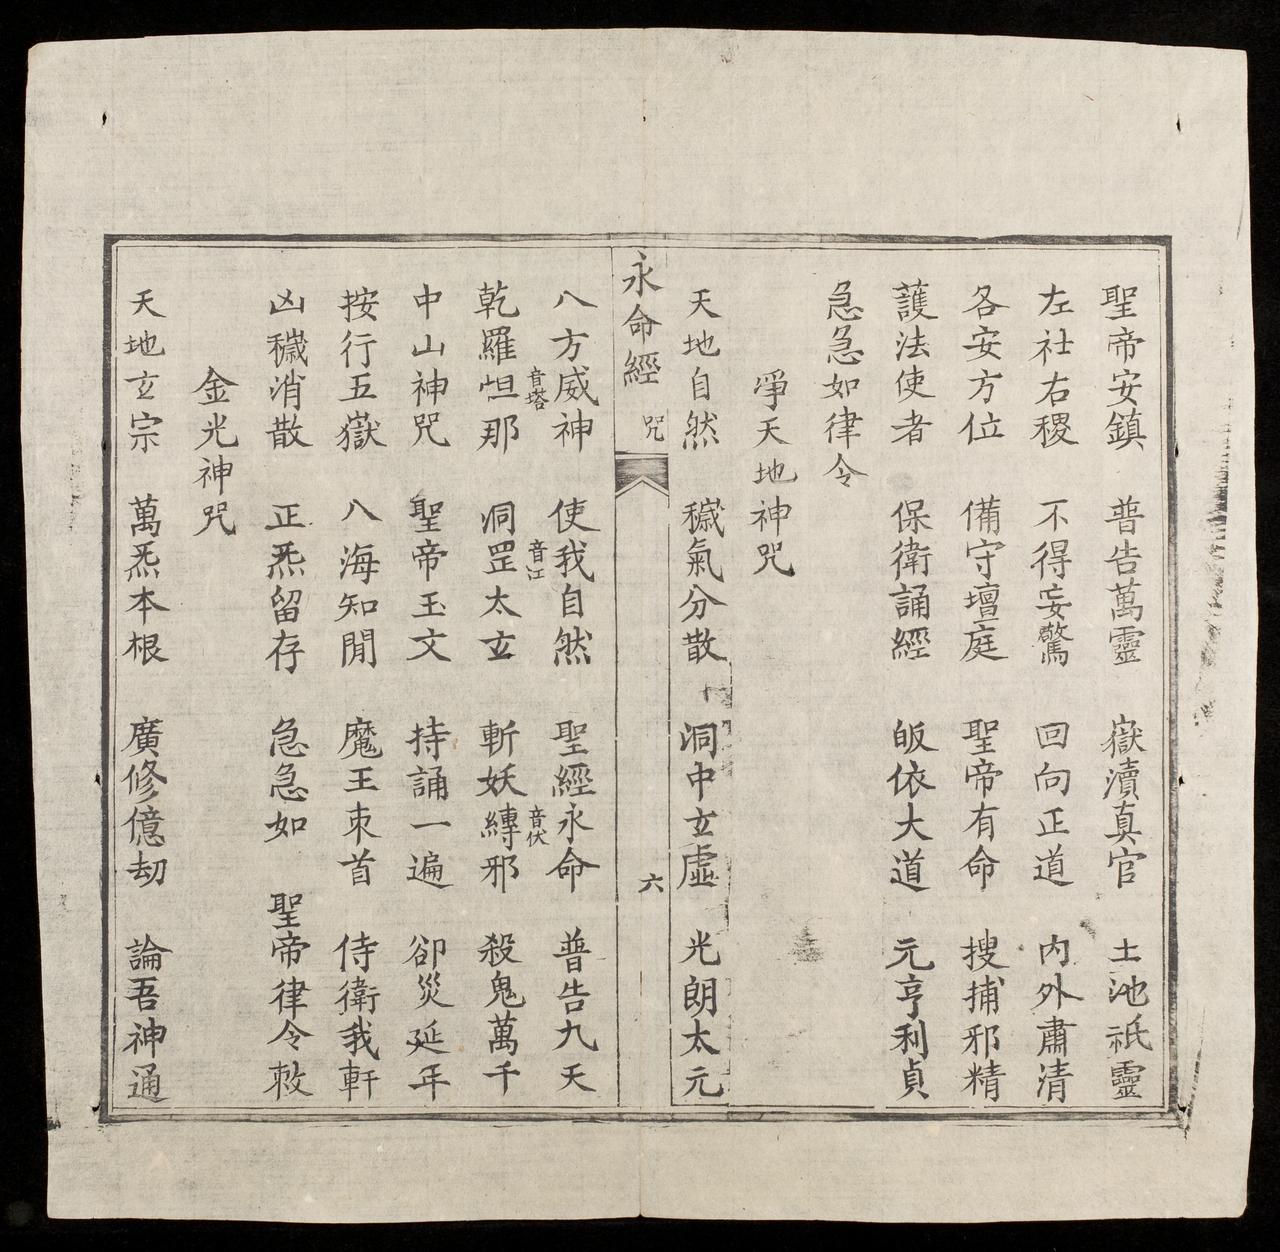 聖帝安鎮　普告萬靈　嶽瀆真官　土地祇靈
左社右稷　不得妄驚　回向正道　内外肅清
各安方位　備守壇庭　聖帝有命　搜捕邪精
護法使者　保衛誦經　皈依大道　元亨利貞
急急如律令
淨天地神咒
天地自然　穢氣分散　洞中玄虛　光朗太元
永命經　咒　六
八方威神　使我自然　聖經永命　普告九天
乾羅怛音塔那　洞罡音江太玄　斬妖縛音伏邪　殺鬼萬千
中山神咒　聖帝玉文　持誦一遍　卻災延年
按行五嶽　八海知聞　魔王束首　侍衛我軒
凶穢消散　正炁留存　急急如　聖帝律令敕
金光神咒
天地玄宗　萬炁本根　廣修億劫　論吾神通